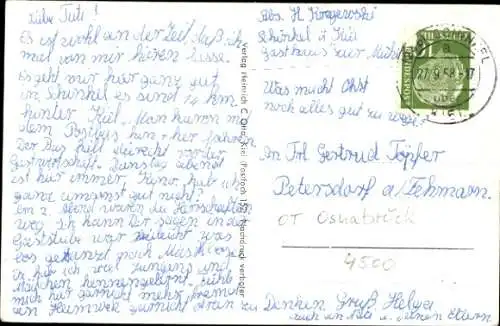 Liebe Tuti!
Es ist wohl an der Zeit, daß ich
mal von mir hören lasse.
Es geht mir hier ganz gut
in Schinkel es sind 14 km
hinter Kiel. Man kann mit
dem Postbus hin + her fahren
Der Bus hält direckt vor der
Gastwirtschaft. Dienstag abend
ist hier immer Kino. hab ich
ganz umsonst gut nicht?
Am 2. Abend waren die Herrschaften
weg. Ich kann Dir sagen in der
Gaststube war vielleicht was
los getanzt nach Musik
in hab ich viel Jungens und
Mädchen kennengelernt. Fühle
mich hier garnicht mehr fremd
an Heimweh garnicht dran zu
Denken Gruß Helga
auch an und Deinen Eltern
Abs. H.
Schinkel ü Kiel
Gasthaus zur
Was macht Ihr
noch alles gut zu wege?
An Frl Gertrud Töpfer
Petersdorf a/Fehmarn.
OT
4500
Verlag Heinrich C. Otto, Kiel (Postfach 15) Nachdruck verboten
27.9.58-17
ÜBER
KIEL